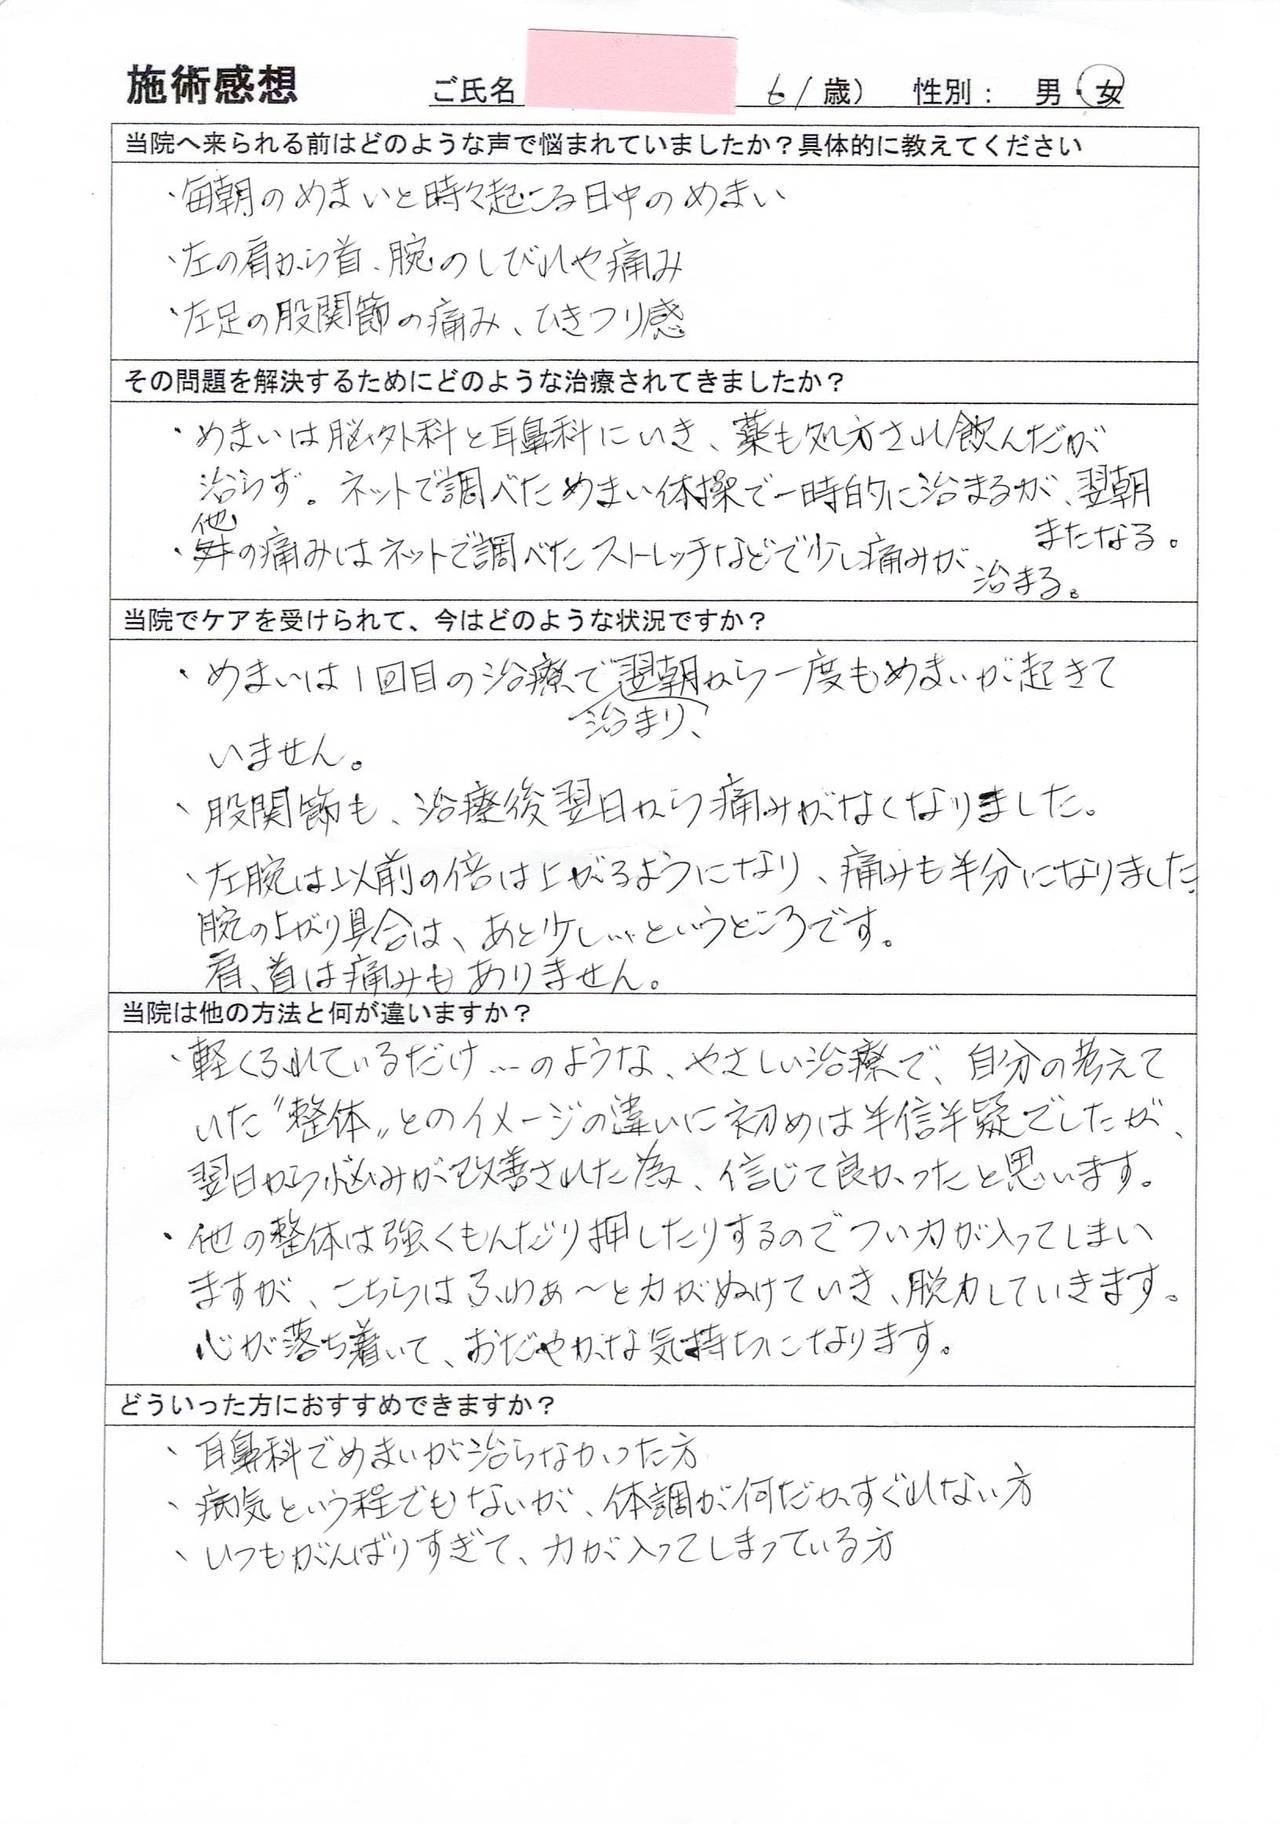 施術感想 ご氏名 61歳） 性別： 男・女
当院へ来られる前はどのような声で悩まれていましたか？具体的に教えてください
・毎朝のめまいと時々起こる日中のめまい
・左の肩から首、腕のしびれや痛み
・左足の股関節の痛み、ひきつり感
その問題を解決するためにどのような治療されてきましたか？
・めまいは脳外科と耳鼻科にいき、薬も処方され飲んだが
治らず。ネットで調べためまい体操で一時的に治まるが、翌朝
またなる。
・他の痛みはネットで調べたストレッチなどで少し痛みが
治まる。
当院でケアを受けられて、今はどのような状況ですか？
・めまいは1回目の治療で治まり、翌朝から一度もめまいが起きて
いません。
・股関節も、治療後翌日から痛みがなくなりました。
・左腕は以前の倍は上がるようになり、痛みも半分になりました
腕の上がり具合は、あと少し…というところです。
肩、首は痛みもありません。
当院は他の方法と何が違いますか？
・軽くふれているだけ…のような、やさしい治療で、自分の考えて
いた〝整体〟とのイメージの違いに初めは半信半疑でしたが、
翌日から悩みが改善された為、信じて良かったと思います。
・他の整体は強くもんだり押したりするのでつい力が入ってしまい
ますが、こちらはふわぁ～と力がぬけていき、脱力していきます。
心が落ち着いて、おだやかな気持ちになります。
どういった方におすすめできますか？
・耳鼻科でめまいが治らなかった方
・病気という程でもないが、体調が何だかすぐれない方
・いつもがんばりすぎて、力が入ってしまっている方